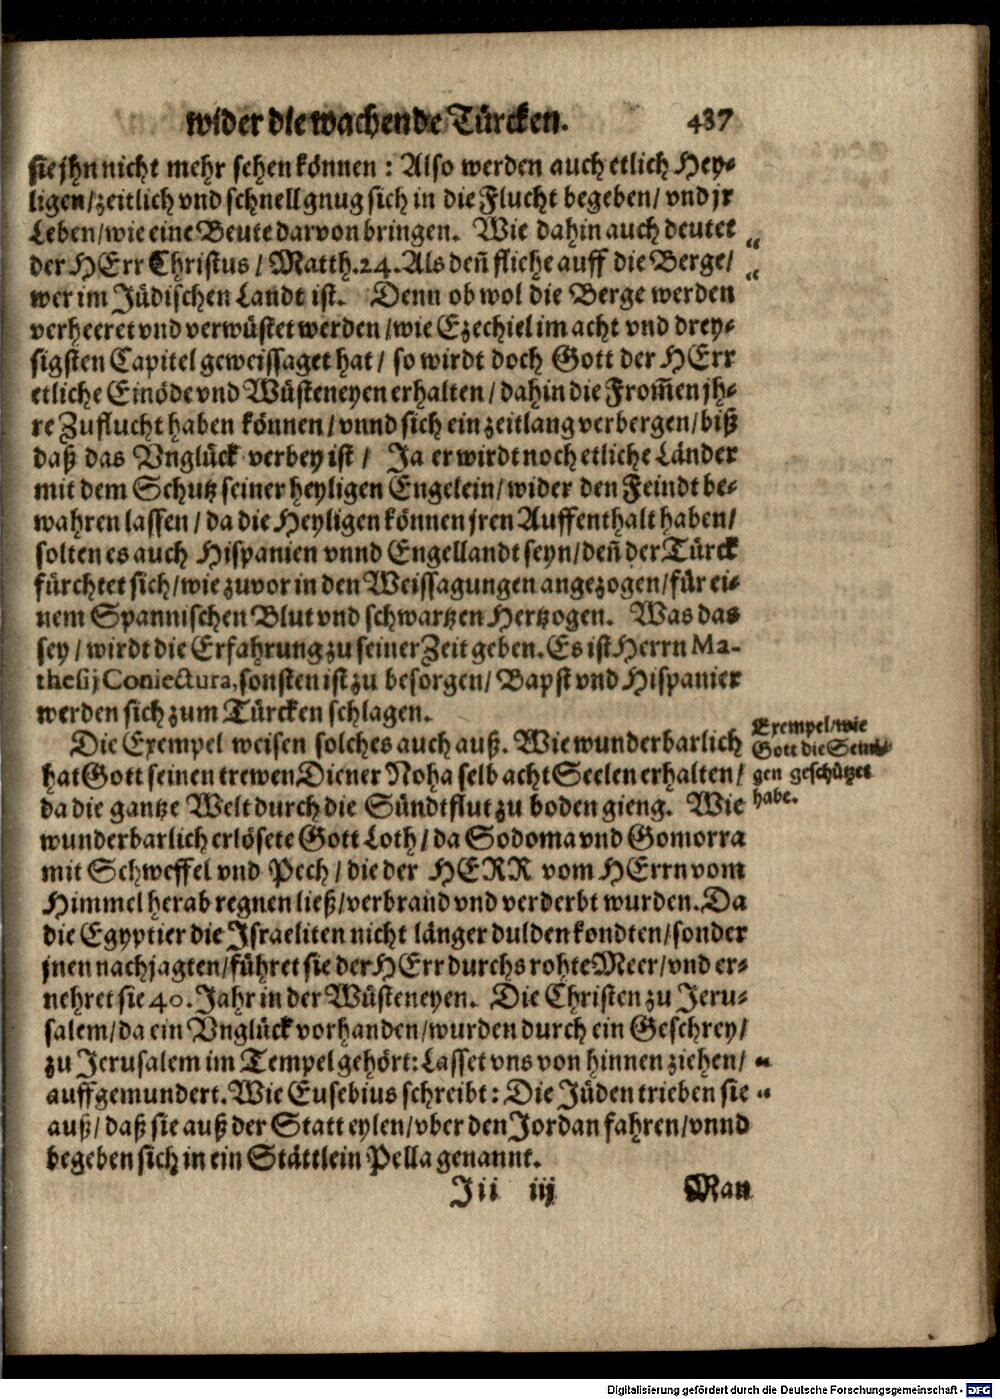 wider die wachende Türcken. 437
sie jhn nicht mehr sehen können : Also werden auch etlich Hey-
ligen/ zeitlich vnd schnell gnug sich in die Flucht begeben/ vnd jr
Leben/ wie eine Beute darvon bringen. Wie dahin auch deutet
der HErr Christus / Matth. 24. Als deñ fliehe auff die Berge/ „
wer im Jüdischen Landt ist. Denn ob wol die Berge werden „
verheeret vnd verwüstet werden / wie Ezechiel im acht vnd drey-
sigsten Capitel geweissaget hat / so wirdt doch Gott der HErr
etliche Einöde vnd Wüsteneyen erhalten / dahin die Fromẽn jh-
re Zuflucht haben können / vnnd sich ein zeitlang verbergen / biß
daß das Vnglück verbey ist / Ja er wirdt noch etliche Länder
mit dem Schutz seiner heyligen Engelein / wider den Feindt be-
wahren lassen / da die Heyligen können jren Auffenthalt haben/
solten es auch Hispanien vnnd Engellandt seyn / deñ der Türck
fürchtet sich / wie zuvor in den Weissagungen angezogen / für ei-
nem Spannischen Blut vnd schwartzen Hertzogen. Was das
sey / wirdt die Erfahrung zu seiner Zeit geben. Es ist Herrn Ma-
thesij Coniectura, sonsten ist zu besorgen / Bapst vnd Hispanier
werden sich zum Türcken schlagen.
Die Exempel weisen solches auch auß. Wie wunderbarlich
hat Gott seinen trewen Diener Noha selb acht Seelen erhalten /
da die gantze Welt durch die Sündtflut zu boden gieng. Wie
wunderbarlich erlösete Gott Loth / da Sodoma vnd Gomorra
mit Schweffel vnd Pech / die der HERR vom HErrn vom
Himmel herab regnen ließ / verbrand vnd verderbt wurden. Da
die Egyptier die Israeliten nicht länger dulden kondten / sonder
jnen nachjagten / führet sie der HErr durchs rohte Meer / vnd er-
nehret sie 40. Jahr in der Wüsteneyen. Die Christen zu Jeru-
salem / da ein Vnglück vorhanden / wurden durch ein Geschrey /
zu Jerusalem im Tempel gehört: Lasset vns von hinnen ziehen / „
auffgemundert. Wie Eusebius schreibt : Die Jüden trieben sie „
auß / daß sie auß der Statt eylen / vber den Jordan fahren / vnnd
begeben sich in ein Stättlein Pella genannt.
Jii iij Man
Exempel / wie
Gott die Seini-
gen geschützet
habe.
Digitalisierung gefördert durch die Deutsche Forschungsgemeinschaft - DFG